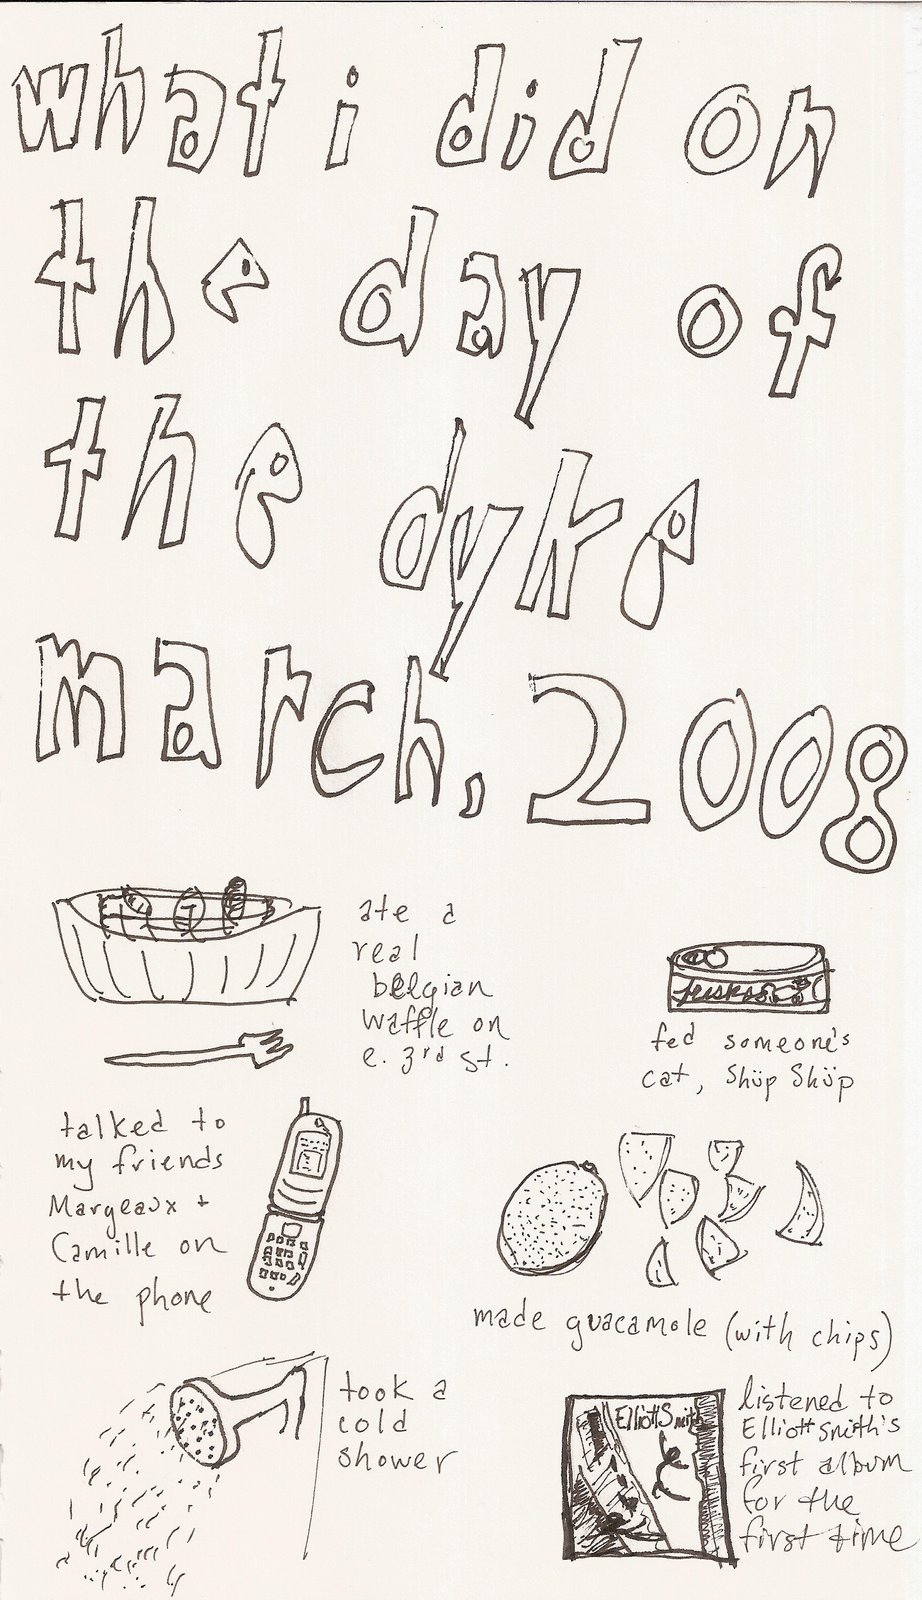 what i did on
the day of
the dyke
march, 2008
ate a
real
belgian
waffle on
e. 3rd st.
friskies
fed someone's
cat, Shüp Shüp
talked to
my friends
Margeaux +
Camille on
the phone
made guacamole (with chips)
took a
cold
shower
Elliott Smith
listened to
Elliott smith's
first album
for the
first time